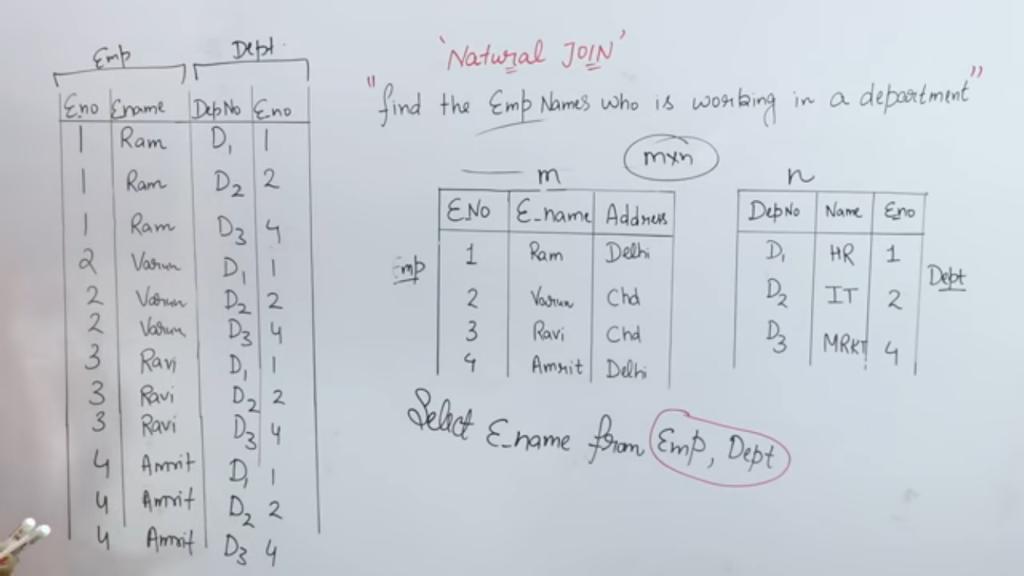 Emp Dept.
Eno Ename DepNo Eno
1 Ram D1 1
1 Ram D2 2
1 Ram D3 4
2 Varun D1 1
2 Varun D2 2
2 Varun D3 4
3 Ravi D1 1
3 Ravi D2 2
3 Ravi D3 4
4 Amrit D1 1
4 Amrit D2 2
4 Amrit D3 4
'Natural JOIN'
"find the Emp Names who is working in a department"
mxn
m
E.No E_name Address
1 Ram Delhi
2 Varun Chd
3 Ravi Chd
4 Amrit Delhi
Emp
n
DepNo Name Eno
D1 HR 1
D2 IT 2
D3 MRKT 4
Dept
Select E_name from Emp, Dept